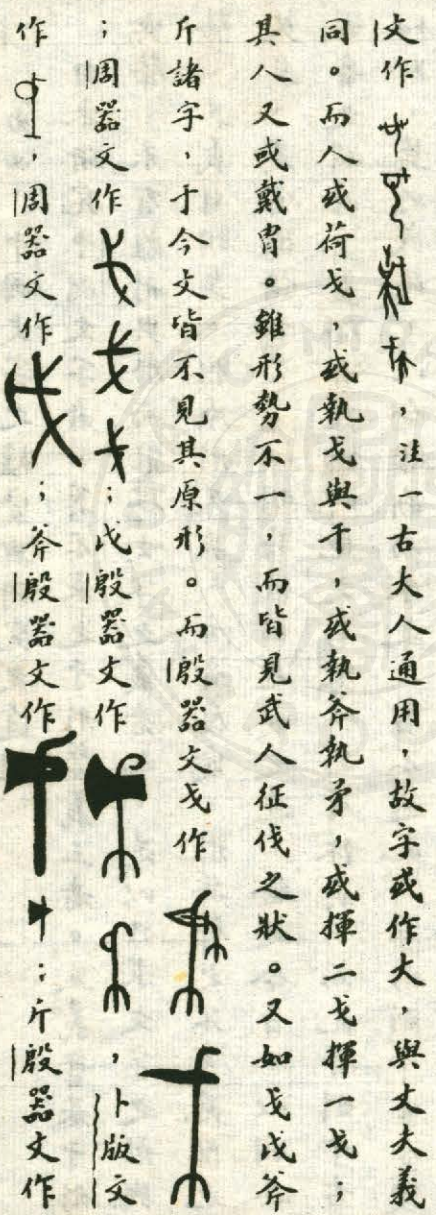 文作，注一古大人通用，故字或作大，與丈夫義
同。而人或荷戈，或執戈與干，或執斧執矛，或揮二戈揮一戈；
其人又或戴冑。雖形勢不一，而皆見武人征伐之狀。又如戈戊斧
斤諸字，于今文皆不見其原形。而殷器文戈作
；周器文作；戊殷器文作，卜版文
作，周器文作；斧殷器文作；斤殷器文作